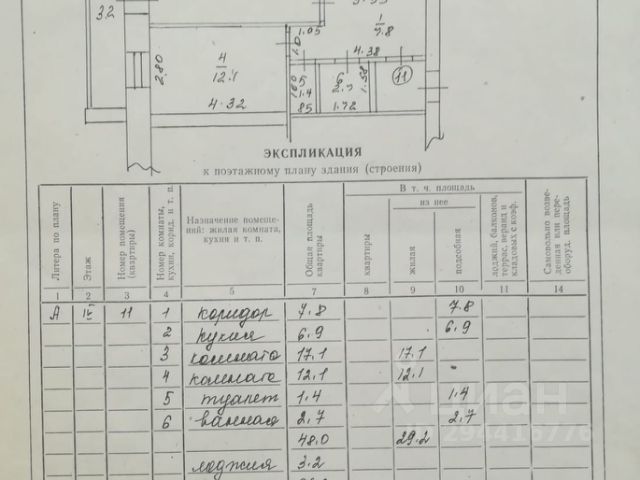 3.2
1.05
1
7.8
4
12.1
2.80
4.32
1.0
4.38
5
1.4
85
6
1.58
1.72
11
ЭКСПЛИКАЦИЯ
к поэтажному плану здания (строения)
Литера по плану
Этаж
Номер помещения (квартиры)
Номер комнаты, кухни, корид. и т. п.
Назначение помещений: жилая комната, кухни и т. п.
Общая площадь квартиры
В т. ч. площадь
из нее
квартиры
жилая
подсобная
лоджий, балконов, террас, веранд и кладовых с коэф.
Самовольно возведенная или переоборуд. площадь
1 2 3 4 5 7 8 9 10 11 14
А 11 1 коридор 7.8 7.8
2 кухня 6.9 6.9
3 комната 17.1 17.1
4 комната 12.1 12.1
5 туалет 1.4 1.4
6 ванная 2.7 2.7
48.0 29.2
лоджия 3.2
циан